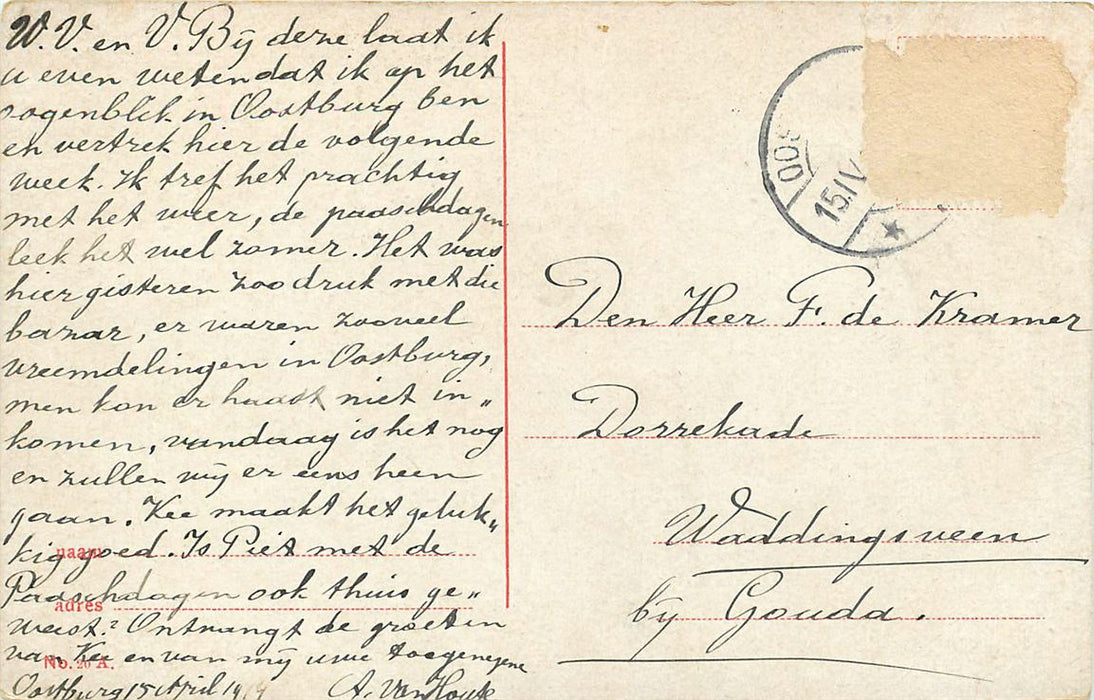 W. V. en V. Bij deze laat ik
u even weten dat ik op het
oogenblik in Oostburg ben
en vertrek hier de volgende
week. Ik tref het prachtig
met het weer, de paaschdagen
leek het wel zomer. Het was
hier gisteren zoo druk met die
bazar, er waren zooveel
vreemdelingen in Oostburg,
men kon er haast niet in„
komen, vandaag is het nog
en zullen wij er eens heen
gaan. Kee maakt het geluk„
kig goed. Is Piet met de
Paaschdagen ook thuis ge„
weest? Ontvangt de groeten
van Kee en van mij uwe toegenegene
Oostburg 15 April 19
A. van Houte
naam
adres
No. 20 A.
OOS
15.IV
Den Heer F. de Kramer
Dorrekade
Waddingsveen
bij Gouda.